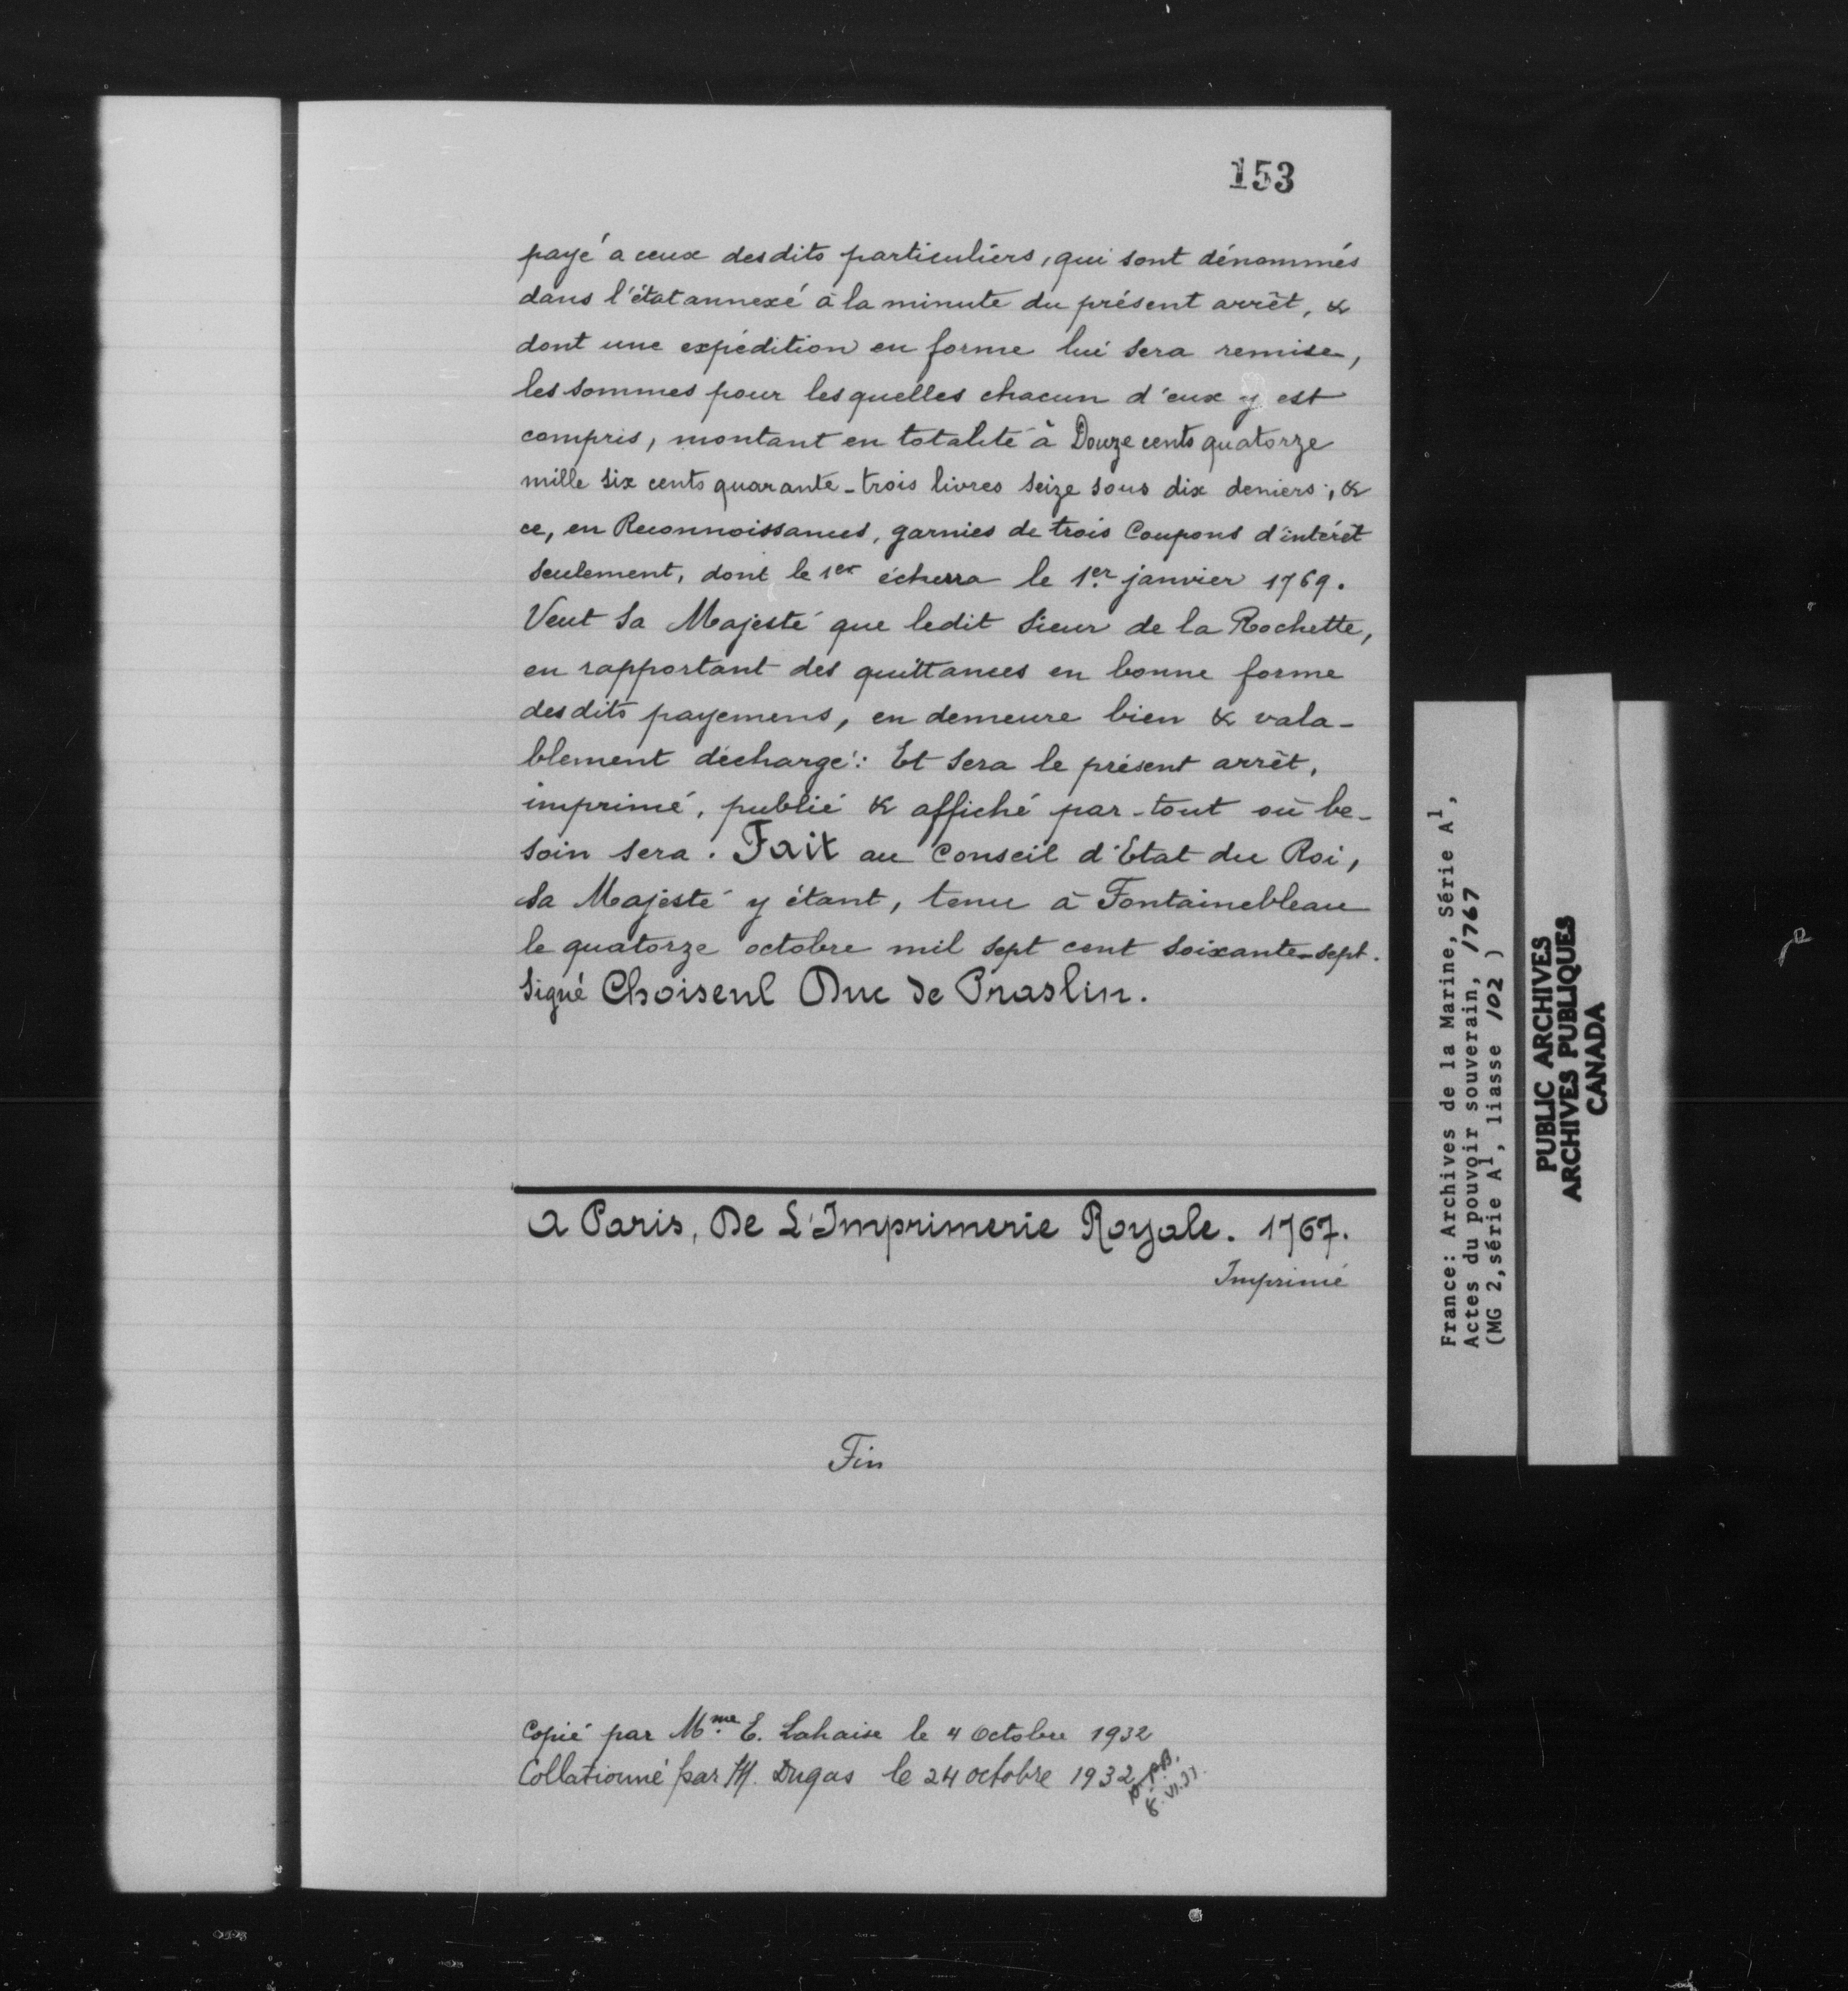 153
payé a ceux desdits particuliers, qui sont dénommés
dans l'état annexé à la minute du présent arrêt, &
dont une expédition en forme lui sera remise,
les sommes pour lesquelles chacun d'eux y est
compris, montant en totalité à Douze cents quatorze
mille six cents quarante-trois livres seize sous dix deniers; &
ce, en Reconnoissances, garnies de trois Coupons d'intérêt
seulement, dont le 1er écherra le 1er janvier 1769.
Veut sa Majesté que ledit Sieur de la Rochette,
en rapportant des quittances en bonne forme
desdits payemens, en demeure bien & vala-
blement déchargé: Et sera le présent arrêt,
imprimé, publié & affiché par-tout où be-
soin sera. Fait au Conseil d'Etat du Roi,
sa Majesté y étant, tenu à Fontainebleau
le quatorze octobre mil sept cent soixante-sept.
Signé Choiseul Duc de Praslin.
A Paris, De L'Imprimerie Royale. 1767.
Imprimé
Fin
Copié par Mme E. Lahaise le 4 Octobre 1932
Collationné par M. Dugas le 24 octobre 1932
France: Archives de la Marine, Série A1,
Actes du pouvoir souverain, 1767
(MG 2, série A1, liasse 102 )
PUBLIC ARCHIVES
ARCHIVES PUBLIQUES
CANADA